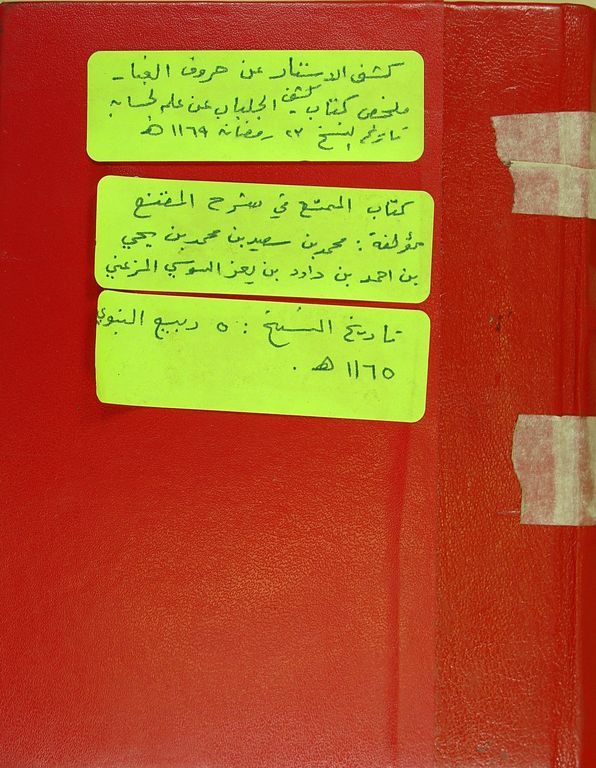 كشف الاستتار عن حروف الغبار
ملخص كتاب كشف الجلباب عن علم الحساب
تاريخ النسخ ٢٣ رمضان ١١٦٩ هـ
كتاب الممتع في شرح المقنع
مؤلفه : محمد بن سعيد بن محمد بن يحيي
بن احمد بن داود بن يعز السوسي المرغتي
تاريخ النسخ : ٥ ربيع النبوي
١١٦٥ هـ .